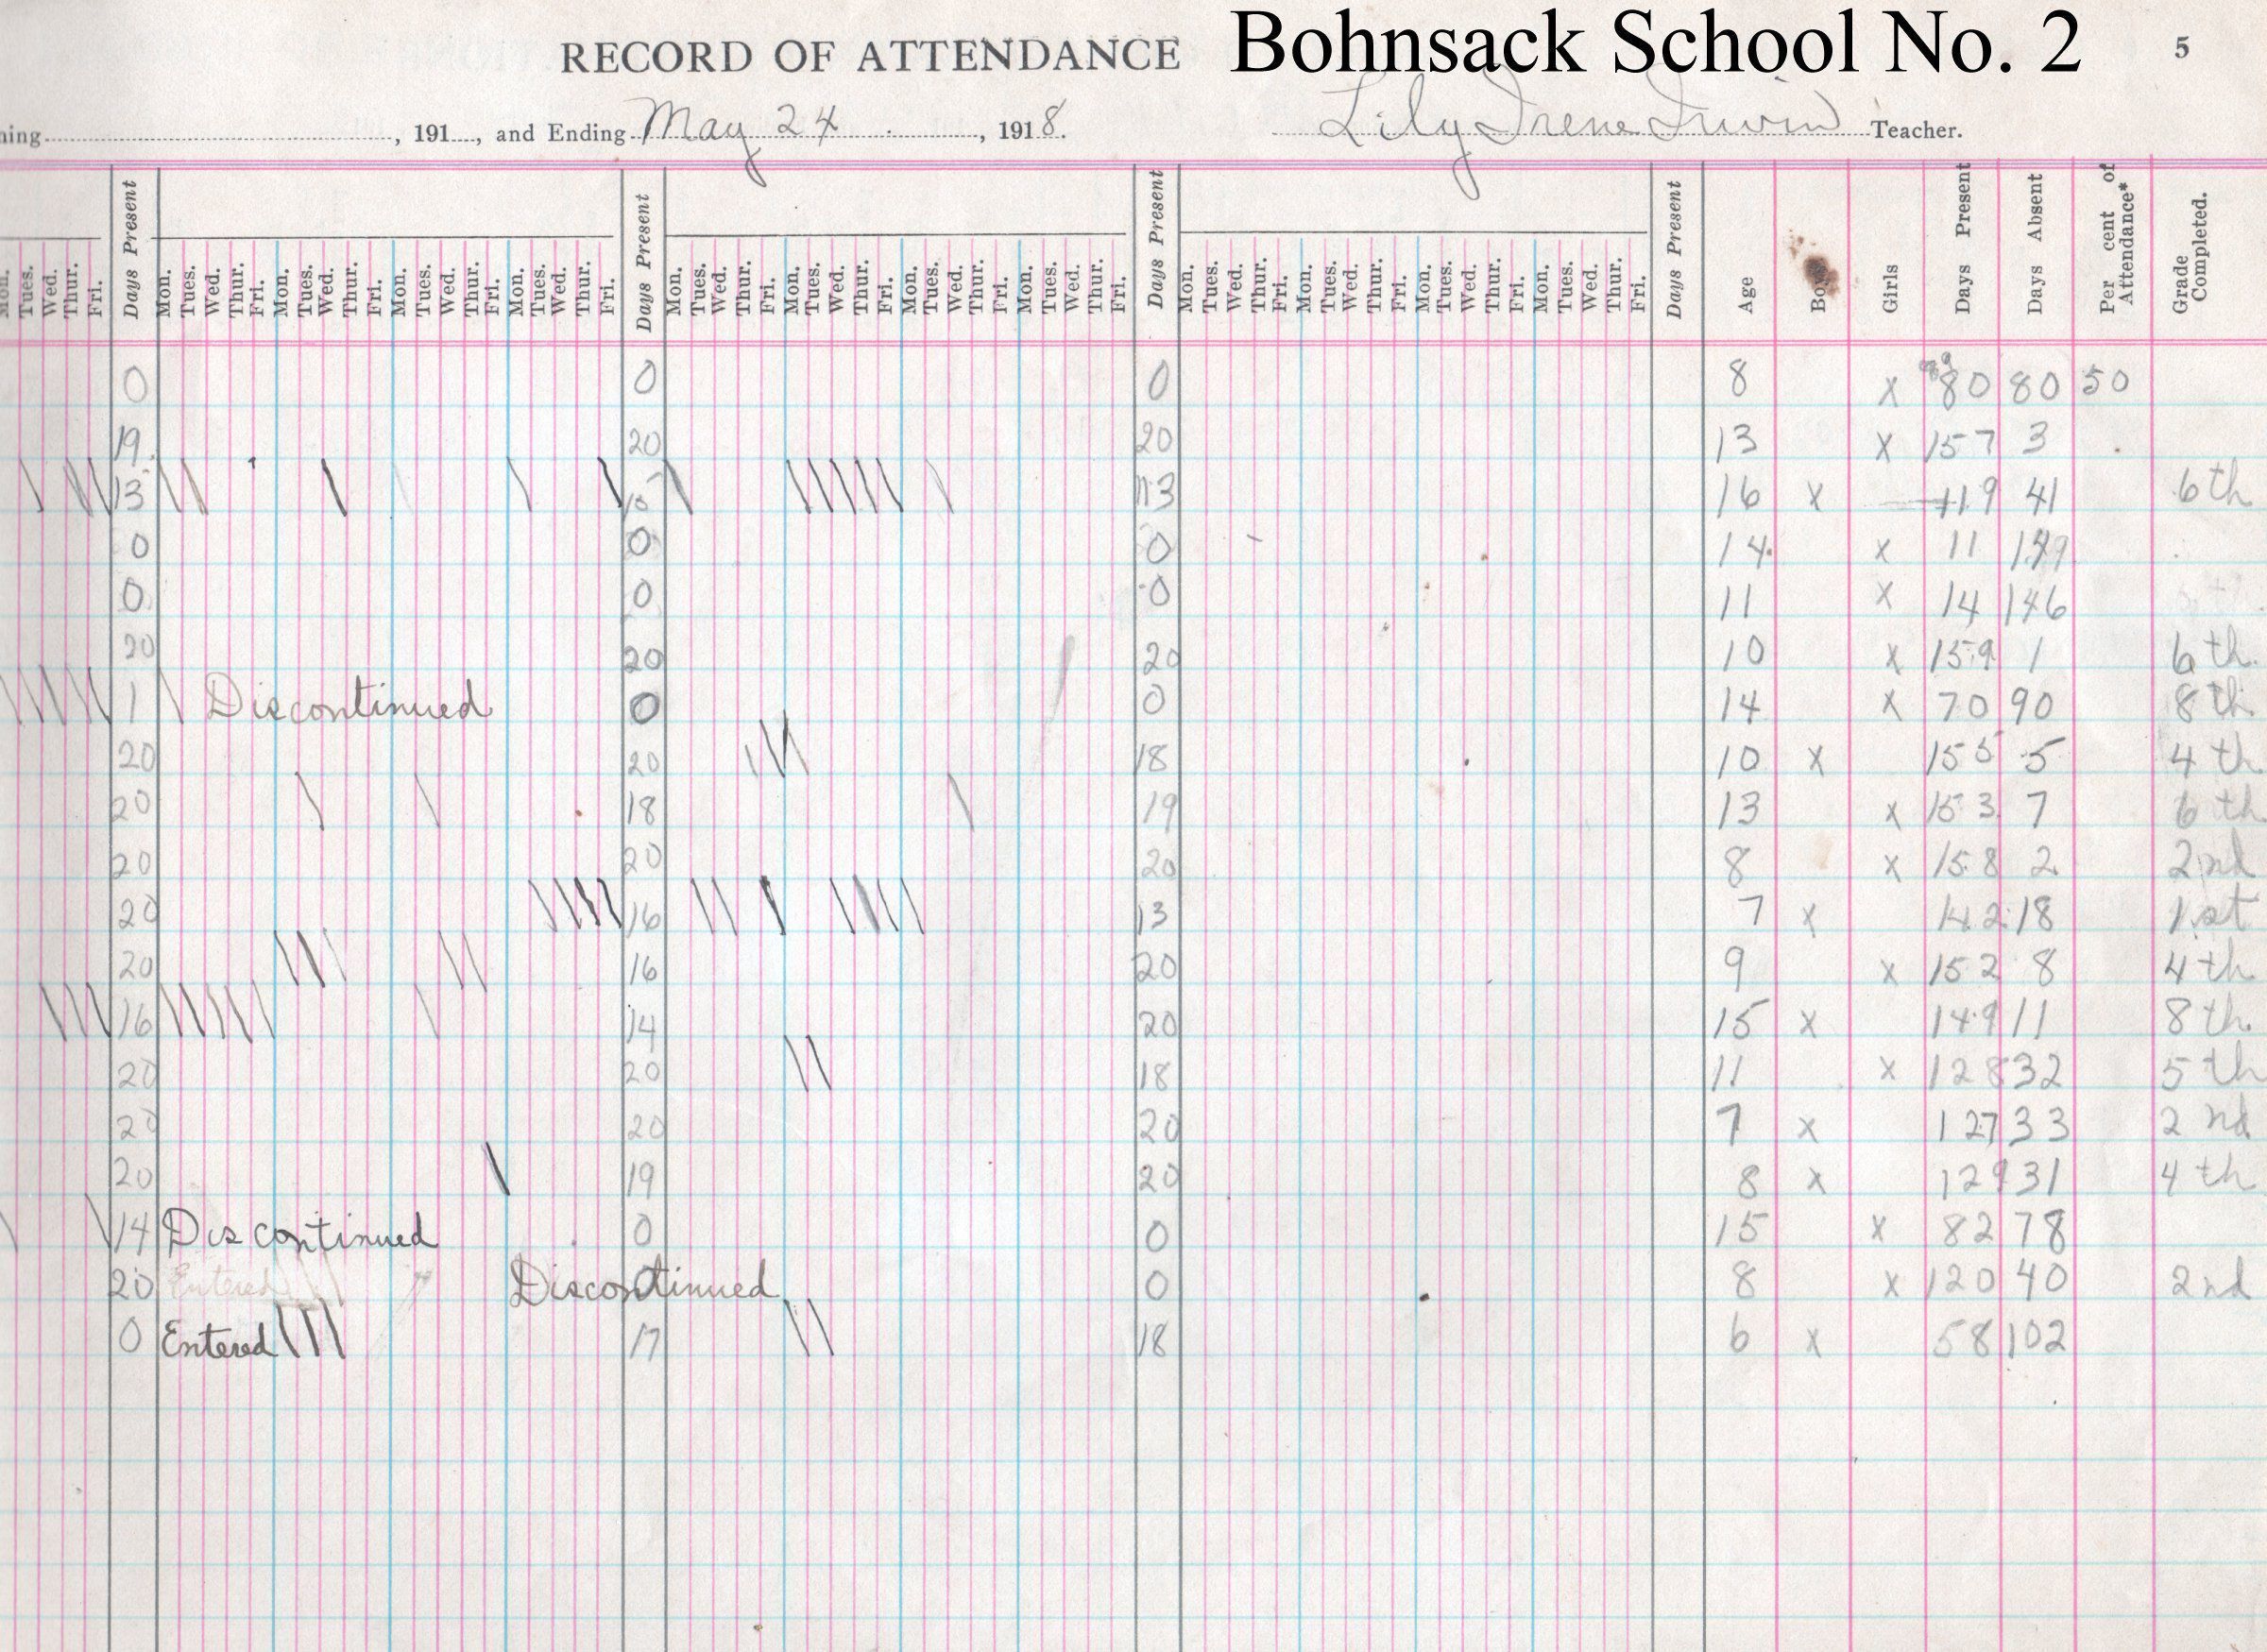 RECORD OF ATTENDANCE Bohnsack School No. 2 5
ning , 191 , and Ending May 24 , 1918. Lily Irene Irwin Teacher.
Days Present Days Present Days Present Days Present Age Boys Girls Days Present Days Absent Per cent of Attendance* Grade Completed.
Mon. Tues. Wed. Thur. Fri. Mon. Tues. Wed. Thur. Fri. Mon. Tues. Wed. Thur. Fri. Mon. Tues. Wed. Thur. Fri. Mon. Tues. Wed. Thur. Fri. Mon. Tues. Wed. Thur. Fri. Mon. Tues. Wed. Thur. Fri. Mon. Tues. Wed. Thur. Fri. Mon. Tues. Wed. Thur. Fri. Mon. Tues. Wed. Thur. Fri. Mon. Tues. Wed. Thur. Fri. Mon. Tues. Wed. Thur. Fri. Mon. Tues. Wed. Thur. Fri.
0 0 0 8 x 80 80 50
19 20 20 13 x 157 3
13 15 13 16 x 119 41 6th
0 0 0 14 x 11 149
0 0 0 11 x 14 146
20 20 20 10 x 159 1 6th
1 Discontinued 0 0 14 x 70 90 8th
20 20 18 10 x 155 5 4th
20 18 19 13 x 153 7 6th
20 20 20 8 x 158 2 2nd
20 16 13 7 x 142 18 1st
20 16 20 9 x 152 8 4th
16 14 20 15 x 149 11 8th
20 20 18 11 x 128 32 5th
20 20 20 7 x 127 33 2nd
20 19 20 8 x 129 31 4th
14 Discontinued 0 0 15 x 82 78
20 Entered Discontinued 0 0 8 x 120 40 2nd
0 Entered 17 18 6 x 58 102